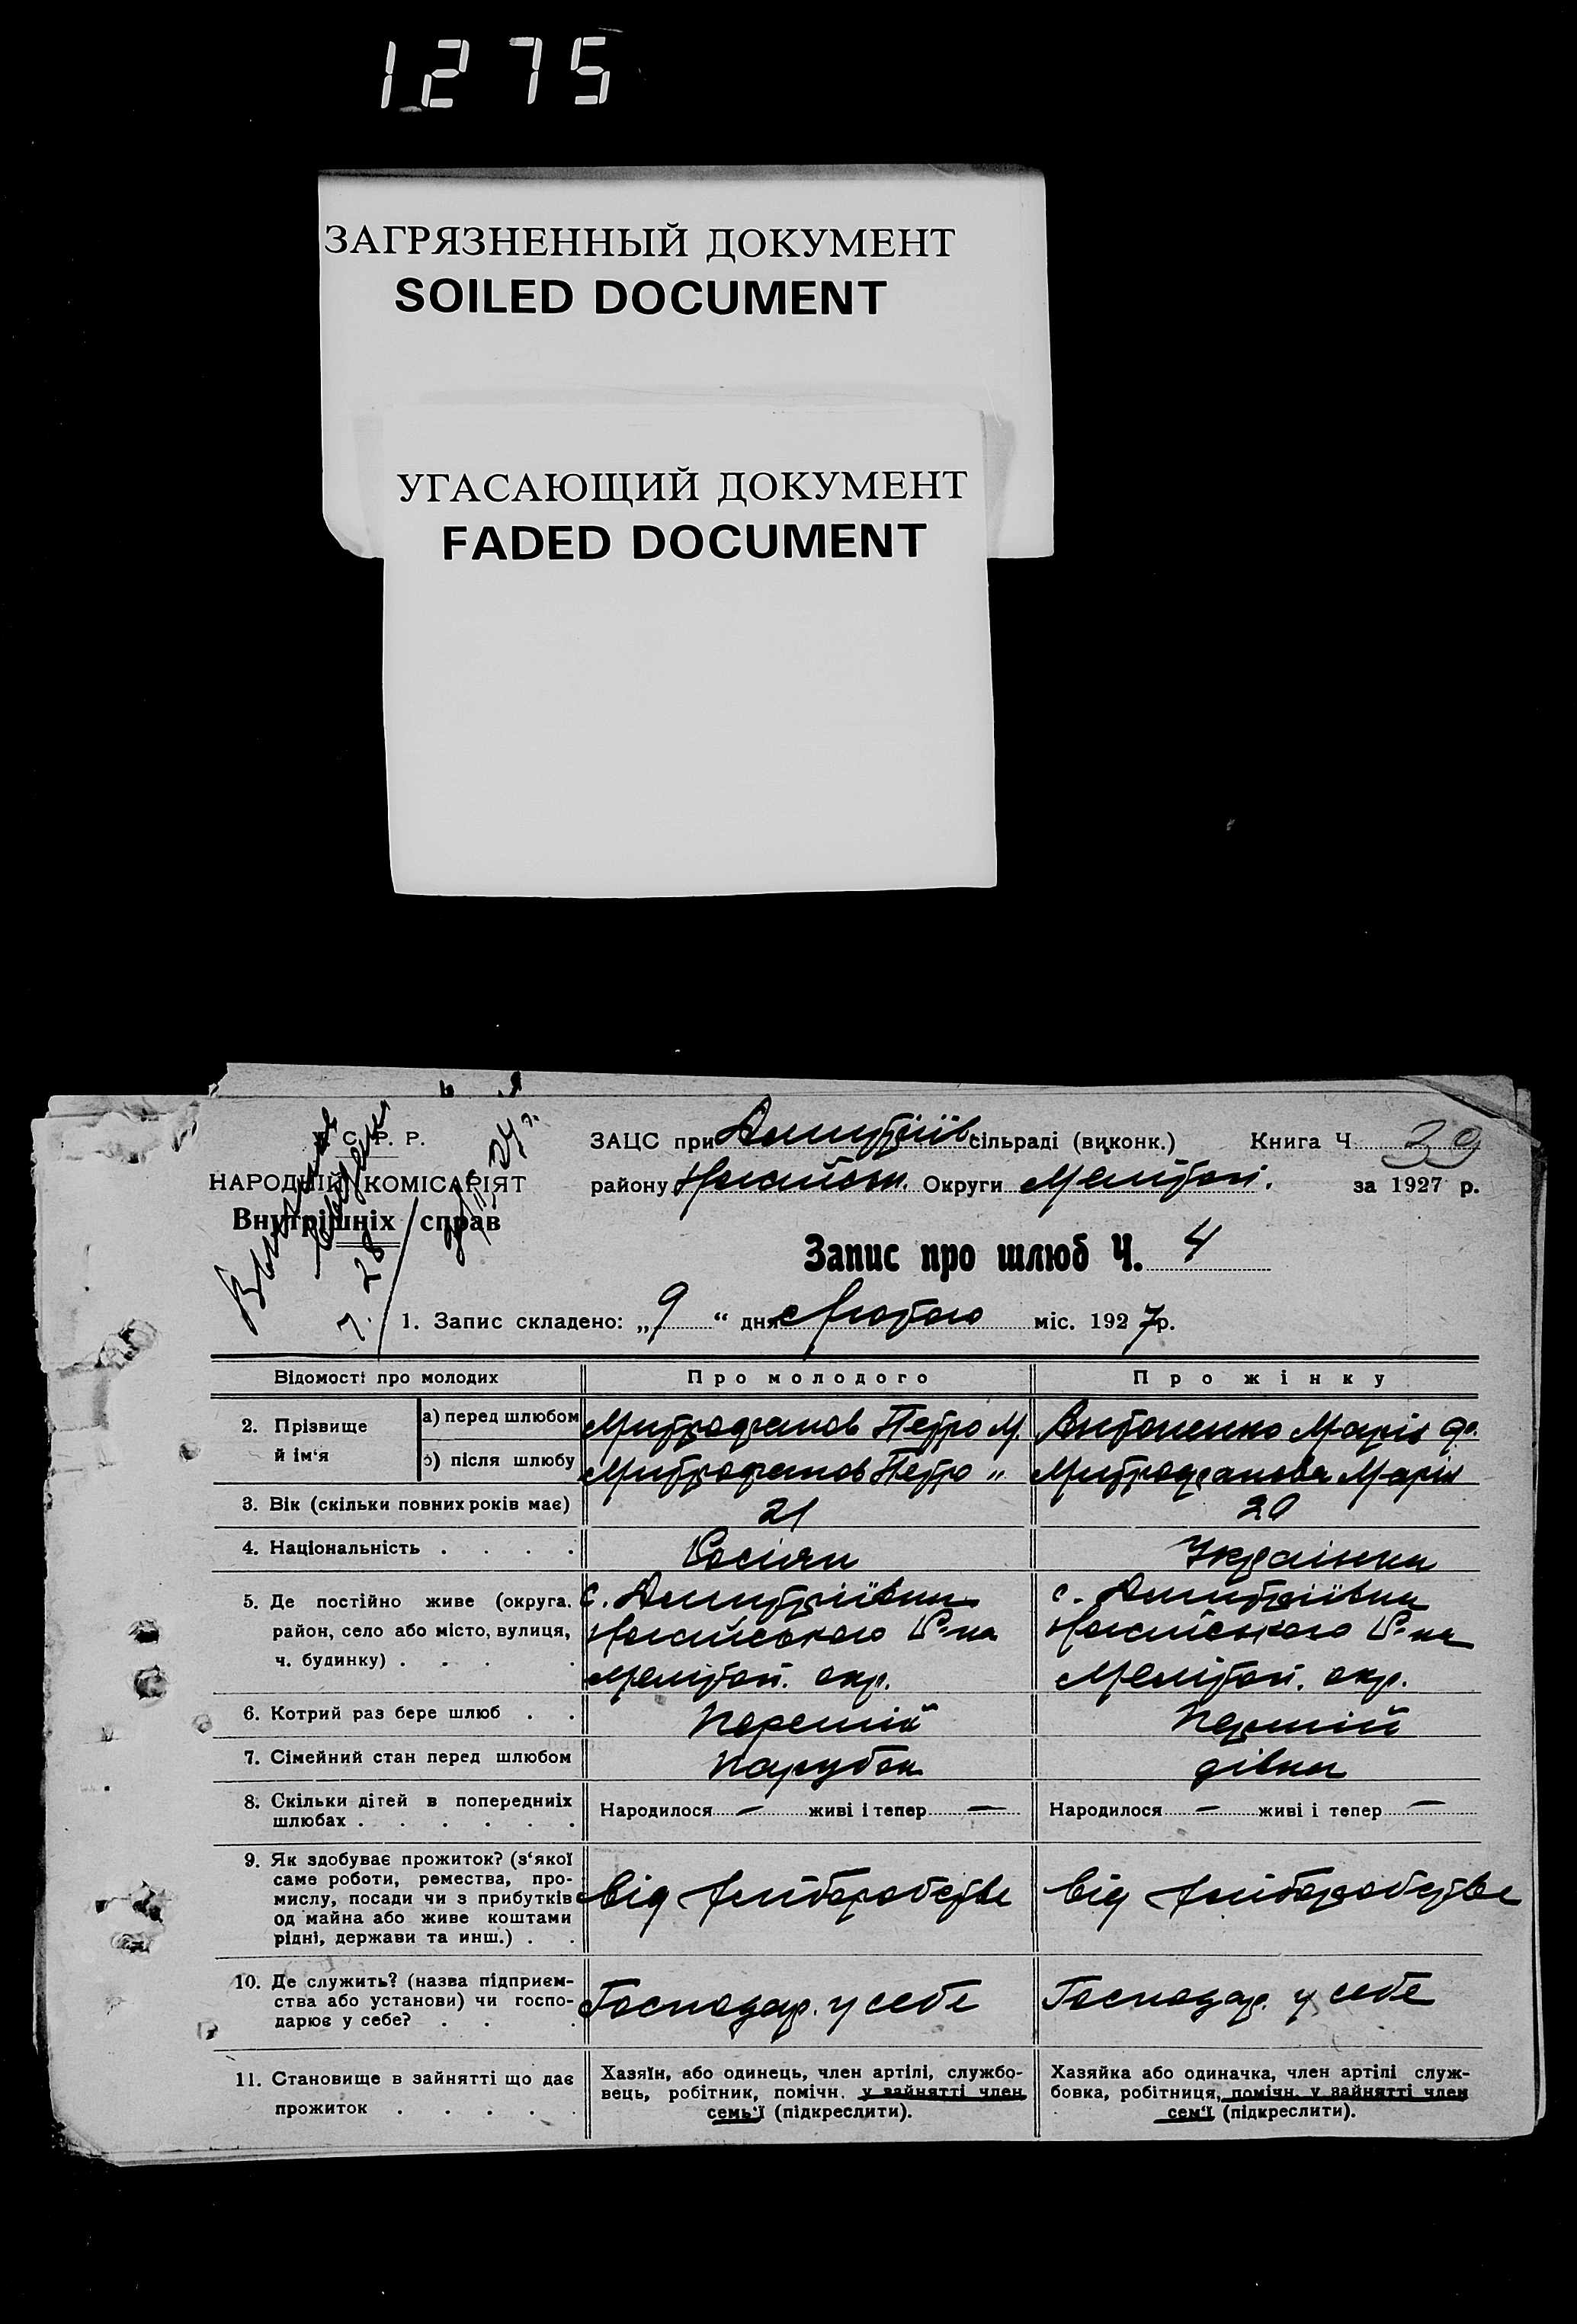 1275
ЗАГРЯЗНЕННЫЙ ДОКУМЕНТ
SOILED DOCUMENT
УГАСАЮЩИЙ ДОКУМЕНТ
FADED DOCUMENT
С. Р. Р.
НАРОДНІЙ КОМІСАРІЯТ
Внутрішніх справ
ЗАЦС при Дмитріїв сільраді (виконк.) Книга Ч 39
району Округи Мелітоп. за 1927 р.
Запис про шлюб Ч. 4
1. Запис складено: „9“ дня Лютого міс. 1927р.
Відомості про молодих Про молодого Про жінку
2. Прізвище й ім‘я
а) перед шлюбом Митрофанов Петро М. Антоненко Марія Ф.
б) після шлюбу Митрофанов Петро „ Митрофанова Марія
3. Вік (скільки повних років має) 21 20
4. Національність . . . . Росіян Українка
5. Де постійно живе (округа, с. Дмитріївка с. Дмитріївка
район, село або місто, вулиця, Р-на Р-на
ч. будинку) . . . . Мелітоп. окр. Мелітоп. окр.
6. Котрий раз бере шлюб . . Перший Перший
7. Сімейний стан перед шлюбом Парубок дівка
8. Скільки дітей в попередніх Народилося — живі і тепер — Народилося — живі і тепер —
шлюбах . . . . . .
9. Як здобуває прожиток? (з‘якої
саме роботи, ремества, про-
мислу, посади чи з прибутків Від хліборобства Від хліборобства
од майна або живе коштами
рідні, держави та инш.) . .
10. Де служить? (назва підприєм-
ства або установи) чи госпо- Господар. у себе Господар. у себе
дарює у себе? . . .
11. Становище в зайнятті що дає Хазяїн, або одинець, член артілі, службо- Хазяйка або одиначка, член артілі служ-
прожиток . . . . . вець, робітник, помічн. у зайнятті член бовка, робітниця, помічн. у зайнятті член
семь‘ї (підкреслити). сем‘ї (підкреслити).